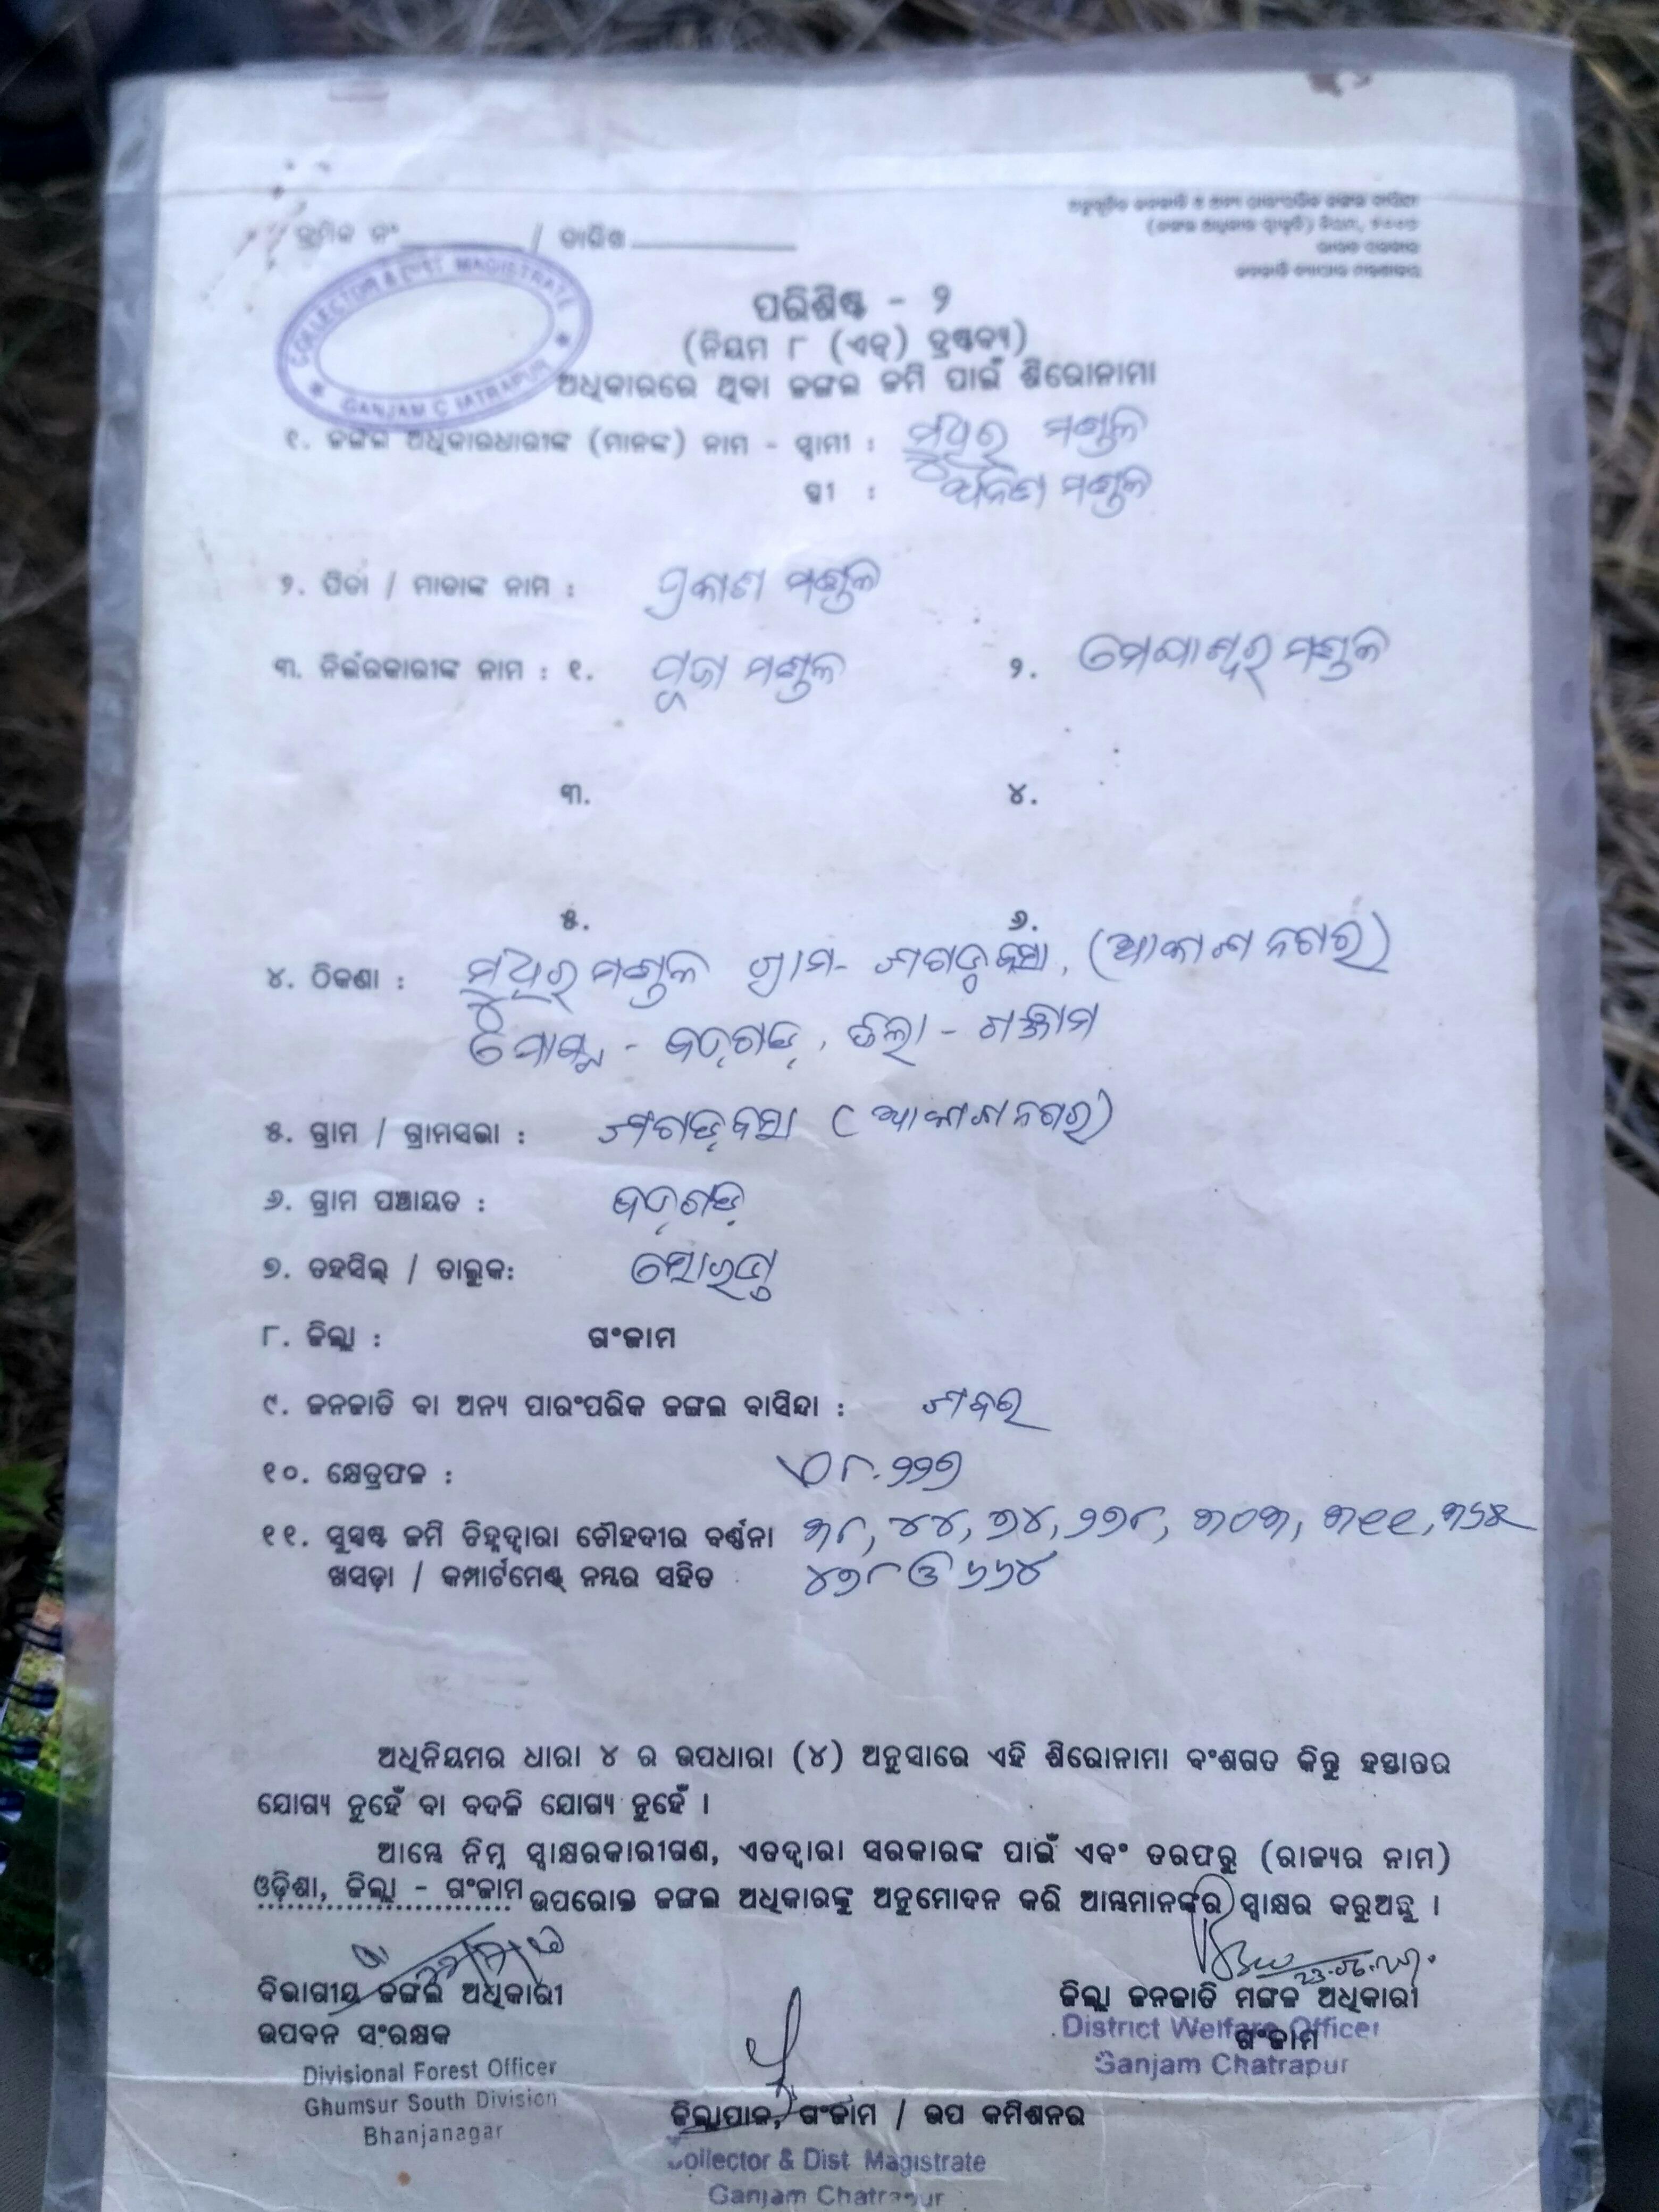 କ୍ରମିକ ନଂ / ତାରିଖ
ଅନୁସୂଚିତ ଜନଜାତି ଓ ଅନ୍ୟ ପାରଂପରିକ ଜଙ୍ଗଲ ବାସିନ୍ଦା
(ଜଙ୍ଗଲ ଅଧିକାର ସ୍ୱୀକୃତି) ନିୟମ, ୨୦୦୭
ଭାରତ ସରକାର
ଜନଜାତି ବ୍ୟାପାର ମନ୍ତ୍ରଣାଳୟ
COLLECTOR & DIST. MAGISTRATE
GANJAM CHATRAPUR
ପରିଶିଷ୍ଟ - ୨
(ନିୟମ ୮ (ଏଚ୍) ଦ୍ରଷ୍ଟବ୍ୟ)
ଅଧିକାରରେ ଥିବା ଜଙ୍ଗଲ ଜମି ପାଇଁ ଶିରୋନାମା
୧. ଜଙ୍ଗଲ ଅଧିକାରଧାରୀଙ୍କ (ମାନଙ୍କ) ନାମ - ସ୍ୱାମୀ : ମଣ୍ଡଳ
ସ୍ତ୍ରୀ : ମଣ୍ଡଳ
୨. ପିତା / ମାତାଙ୍କ ନାମ : ପ୍ରକାଶ ମଣ୍ଡଳ
୩. ନିର୍ଭରକାରୀଙ୍କ ନାମ : ୧. ପୂଜା ମଣ୍ଡଳ ୨. ମଣ୍ଡଳ
୩. ୪.
୫. ୬.
୪. ଠିକଣା : ମଣ୍ଡଳ ଗ୍ରାମ- ଶଗଡ଼ବସା, (ଆକାଶନଗର)
ପୋଷ୍ଟ - ବଡ଼ଗଡ଼, ଜିଲ୍ଲା - ଗଞ୍ଜାମ
୫. ଗ୍ରାମ / ଗ୍ରାମସଭା : ଶଗଡ଼ବସା (ଆକାଶନଗର)
୬. ଗ୍ରାମ ପଞ୍ଚାୟତ : ବଡ଼ଗଡ଼
୭. ତହସିଲ୍ / ତାଲୁକ: ସୋରଡ଼ା
୮. ଜିଲ୍ଲା : ଗଂଜାମ
୯. ଜନଜାତି ବା ଅନ୍ୟ ପାରଂପରିକ ଜଙ୍ଗଲ ବାସିନ୍ଦା : ଶବର
୧୦. କ୍ଷେତ୍ରଫଳ : ୦୮.୨୨୭
୧୧. ସୁସ୍ପଷ୍ଟ ଜମି ଚିହ୍ନଦ୍ୱାରା ଚୌହଦୀର ବର୍ଣ୍ଣନା ୩୮, ୪୪, ୭୪, ୨୭୮, ୩୦୩, ୩୧୧, ୩୬୫
ଖସଡ଼ା / କମ୍ପାର୍ଟମେଣ୍ଟ ନମ୍ବର ସହିତ ୪୭୮ ଓ ୬୬୪
ଅଧିନିୟମର ଧାରା ୪ ର ଉପଧାରା (୪) ଅନୁସାରେ ଏହି ଶିରୋନାମା ବଂଶଗତ କିନ୍ତୁ ହସ୍ତାନ୍ତର
ଯୋଗ୍ୟ ନୁହେଁ ବା ବଦଳି ଯୋଗ୍ୟ ନୁହେଁ ।
ଆମ୍ଭେ ନିମ୍ନ ସ୍ୱାକ୍ଷରକାରୀଗଣ, ଏତଦ୍ୱାରା ସରକାରଙ୍କ ପାଇଁ ଏବଂ ତରଫରୁ (ରାଜ୍ୟର ନାମ)
ଓଡ଼ିଶା, ଜିଲ୍ଲା - ଗଂଜାମ ଉପରୋକ୍ତ ଜଙ୍ଗଲ ଅଧିକାରଙ୍କୁ ଅନୁମୋଦନ କରି ଆମ୍ଭମାନଙ୍କର ସ୍ୱାକ୍ଷର କରୁଅଛୁ ।
ବିଭାଗୀୟ ଜଙ୍ଗଲ ଅଧିକାରୀ
ଉପବନ ସଂରକ୍ଷକ
Divisional Forest Officer
Ghumsur South Division
Bhanjanagar
ଜିଲ୍ଲା ଜନଜାତି ମଙ୍ଗଳ ଅଧିକାରୀ
ଗଂଜାମ
District Welfare Officer
Ganjam Chatrapur
ଜିଲ୍ଲାପାଳ, ଗଂଜାମ / ଉପ କମିଶନର
Collector & Dist. Magistrate
Ganjam Chatrapur